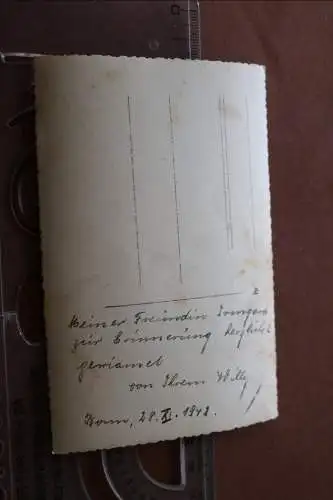 Meiner Freundin Irmgard
zur Erinnerung herzlichst
gewidmet
von Ihrem Willy
Bonn, 28. XI. 1942.